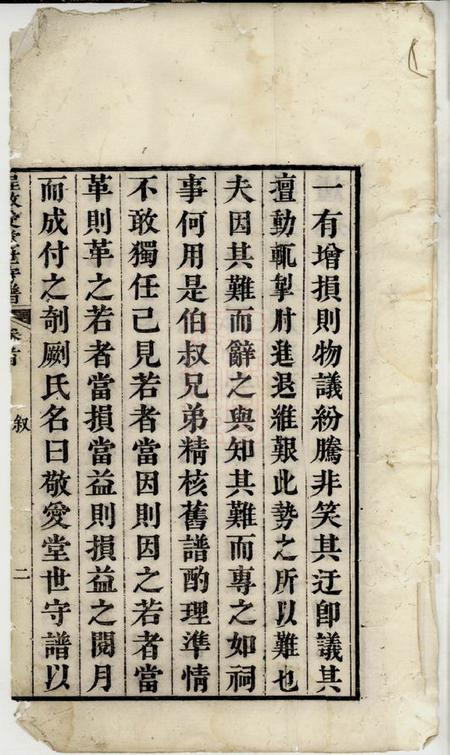 一有增損則物議紛騰非笑其迂卽議其
擅動輒掣肘進退維艱此勢之所以難也
夫因其難而辭之與知其難而專之如祠
事何用是伯叔兄弟精核舊譜酌理準情
不敢獨任己見若者當因則因之若者當
革則革之若者當損當益則損益之閱月
而成付之剞劂氏名曰敬愛堂世守譜以
敘
二